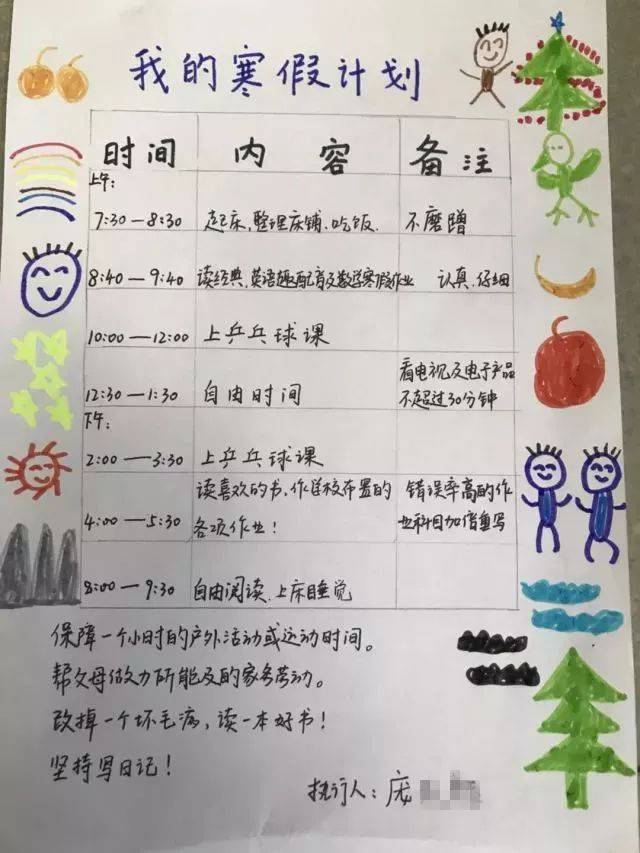 我的寒假计划
时间 内容 备注
上午:
7:30—8:30 起床、整理床铺、吃饭. 不磨蹭
8:40—9:40 读经典、英语趣配音及数学寒假作业 认真、仔细
10:00—12:00 上乒乓球课
12:30—1:30 自由时间 看电视及电子产品
不超过30分钟
下午:
2:00—3:30 上乒乓球课
4:00—5:30 读喜欢的书、作学校布置的 错误率高的作
各项作业! 业科目加倍重写
8:00—9:30 自由阅读、上床睡觉
保障一个小时的户外活动或运动时间。
帮父母做力所能及的家务劳动。
改掉一个坏毛病,读一本好书!
坚持写日记!
执行人:庞